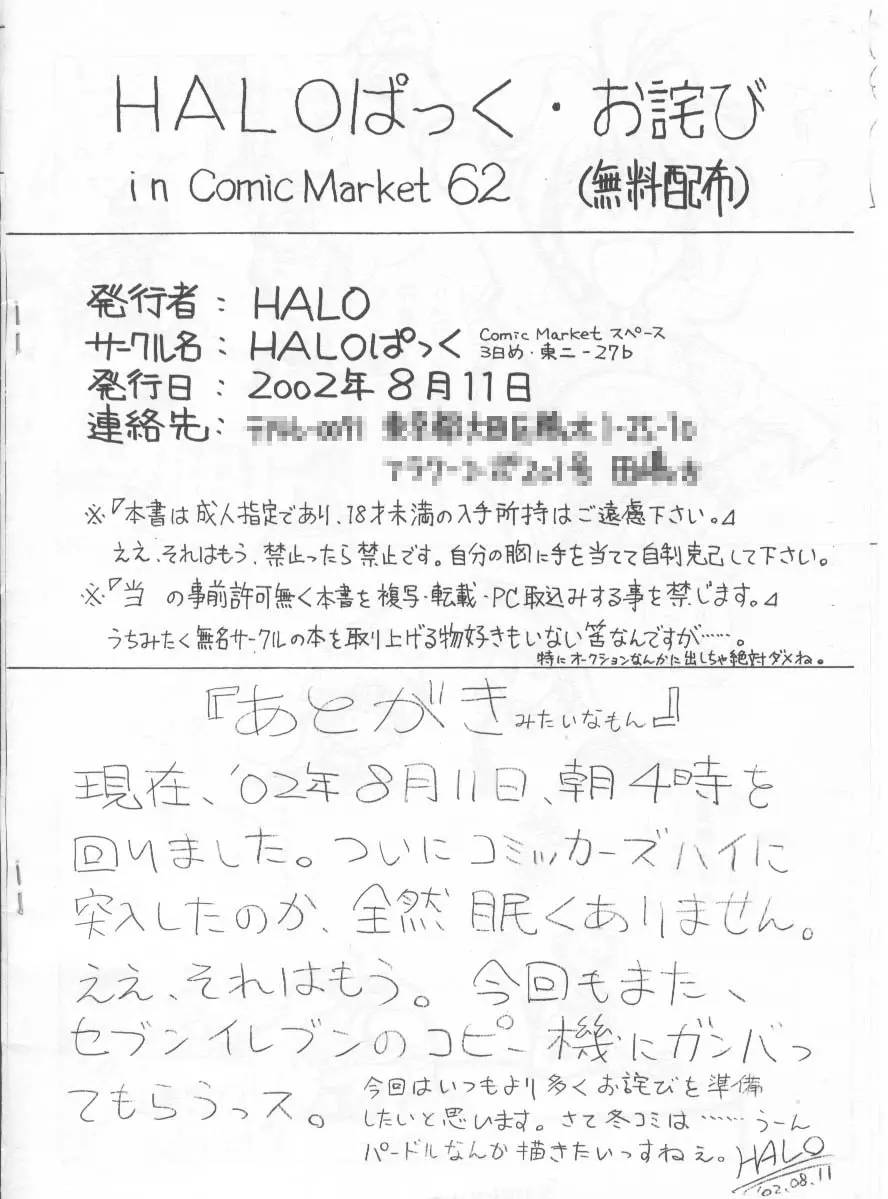 HALOぱっく・お詫び
in Comic Market 62 (無料配布)
発行者: HALO
サークル名: HALOぱっく Comic Market スペース
3日め・東ニ-27b
発行日: 2002年8月11日
連絡先:
※『本書は成人指定であり、18才未満の入手所持はご遠慮下さい。』
ええ、それはもう、禁止ったら禁止です。自分の胸に手を当てて自制克己して下さい。
※『当 の事前許可無く本書を複写・転載・PC取込みする事を禁じます。』
うちみたく無名サークルの本を取り上げる物好きもいない筈なんですが……。
特にオークションなんかに出しちゃ絶対ダメね。
『あとがきみたいなもん』
現在、'02年8月11日、朝4時を
回りました。ついにコミッカーズハイに
突入したのか、全然眠くありません。
ええ、それはもう。今回もまた、
セブンイレブンのコピー機にガンバっ
てもらうっス。
今回はいつもより多くお詫びを準備
したいと思います。さて冬コミは……うーん
パードルなんか描きたいっすねぇ。
HALO
'02.08.11